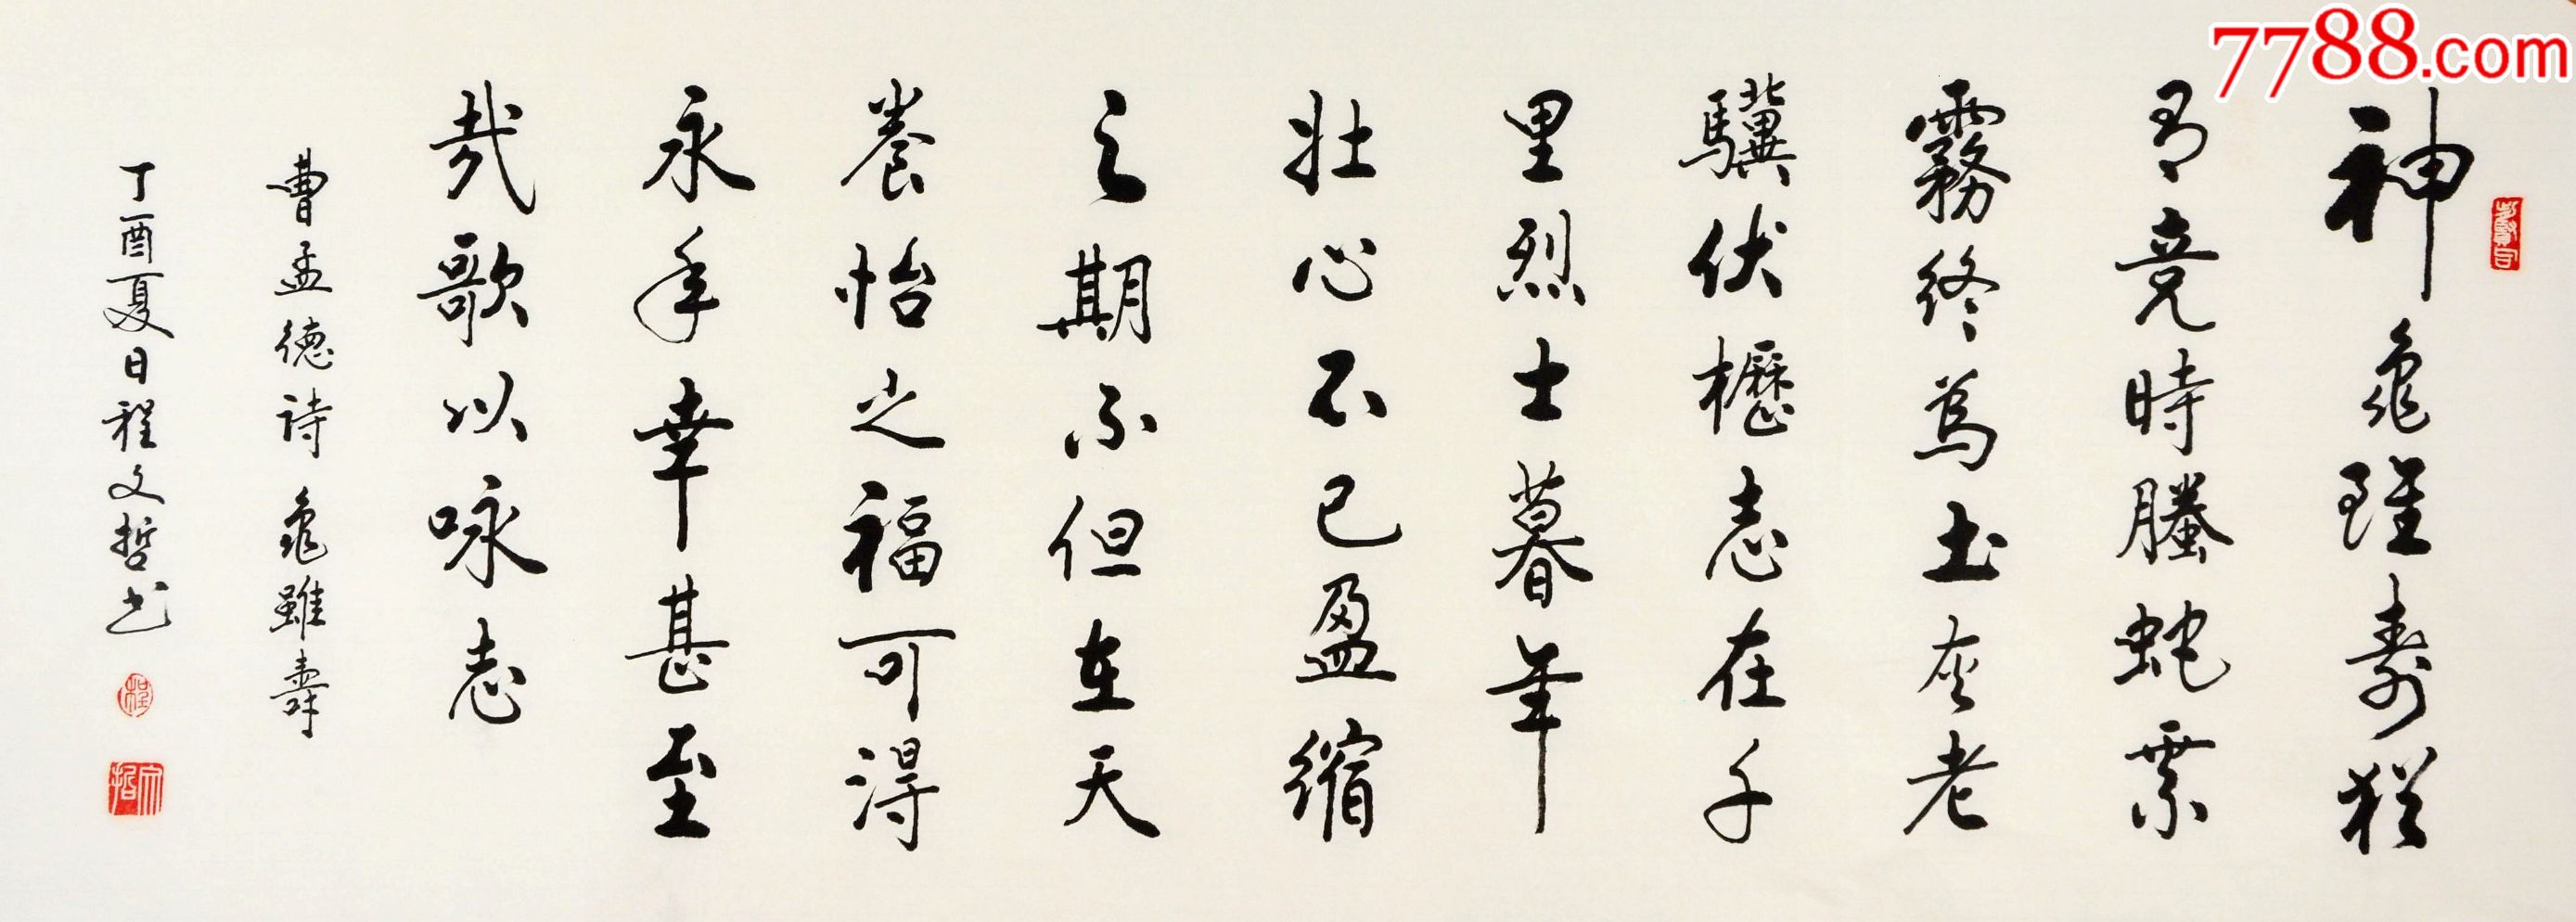 7788.com
神龜雖壽猶
有竟時螣蛇乘
霧終為土灰老
驥伏櫪志在千
里烈士暮年
壯心不已盈縮
之期不但在天
養怡之福可得
永年幸甚至
哉歌以咏志
曹孟德詩龜雖壽
丁酉夏日程文哲书
程
文哲